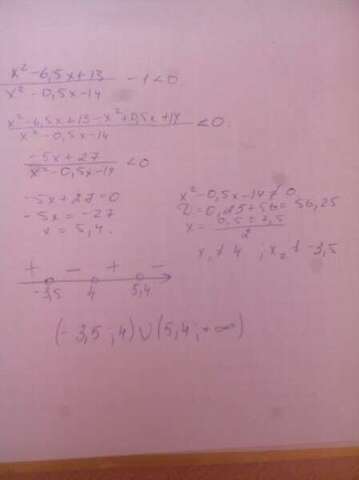 x² - 6,5x + 13 / x² - 0,5x - 14 - 1 < 0.
x² - 6,5x + 13 - x² + 0,5x + 14 / x² - 0,5x - 14 < 0.
-5x + 27 / x² - 0,5x - 14 < 0
-5x + 27 = 0
-5x = -27
x = 5,4.
x² - 0,5x - 14 ≠ 0
D = 0,25 + 56 = 56,25
x = 0,5 ± 7,5 / 2
x₁ ≠ 4 ; x₂ ≠ -3,5
+ - + -
-3,5 4 5,4
(-3,5 ; 4) ∪ (5,4 ; +∞)